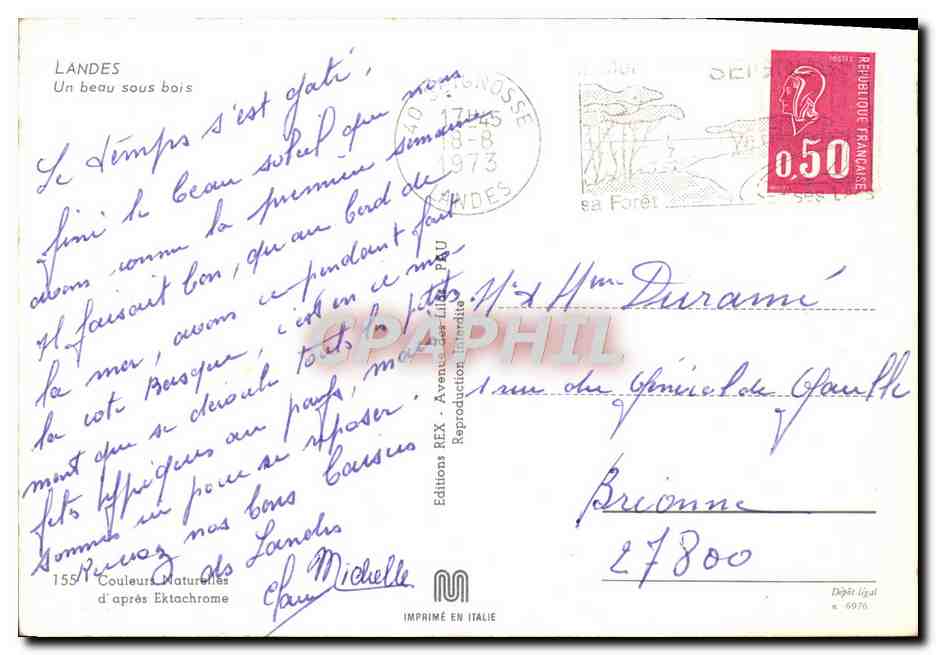 LANDES
Un beau sous bois
Le temps s'est gaté,
fini le beau soleil que nous
avons connu la première semaine
Il faisait bon, qu'au bord de
la mer, avons cependant fait
la cote Basque, c'est en ce mo-
ment que se déroule toutes les petites
fetes typiques au pays, mais
sommes ici pour se reposer.
Recevez nos bons baisers
des Landes
Michelle
155 Couleurs Naturelles
d'après Ektachrome
40 SEIGNOSSE
17H45
18-8
1973
LANDES
SEI
sa Forêt
ses
POSTES
RÉPUBLIQUE FRANÇAISE
0,50
Editions REX - Avenue des Lilas - PAU
Reproduction Interdite
CPAPHIL
Mr & Mme Duramé
1 rue du Général de Gaulle
Brionne
27800
IMPRIMÉ EN ITALIE
Dépôt légal
n. 6976